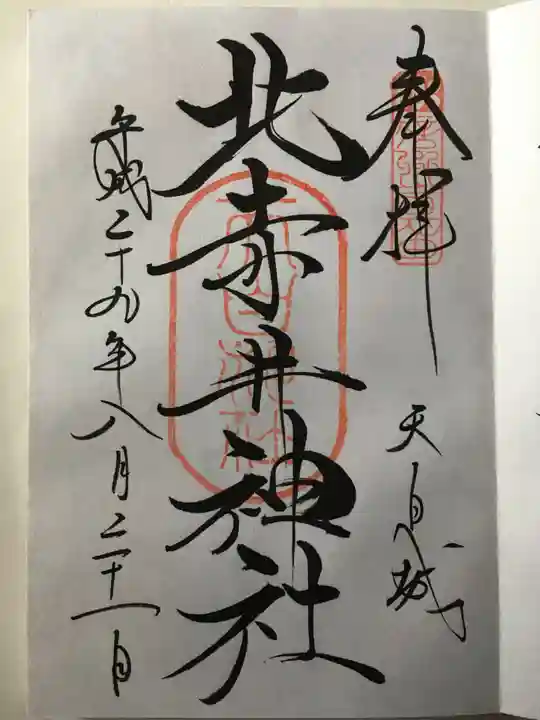 奉拝
天白城
北赤井神社
平成二十九年八月二十一日